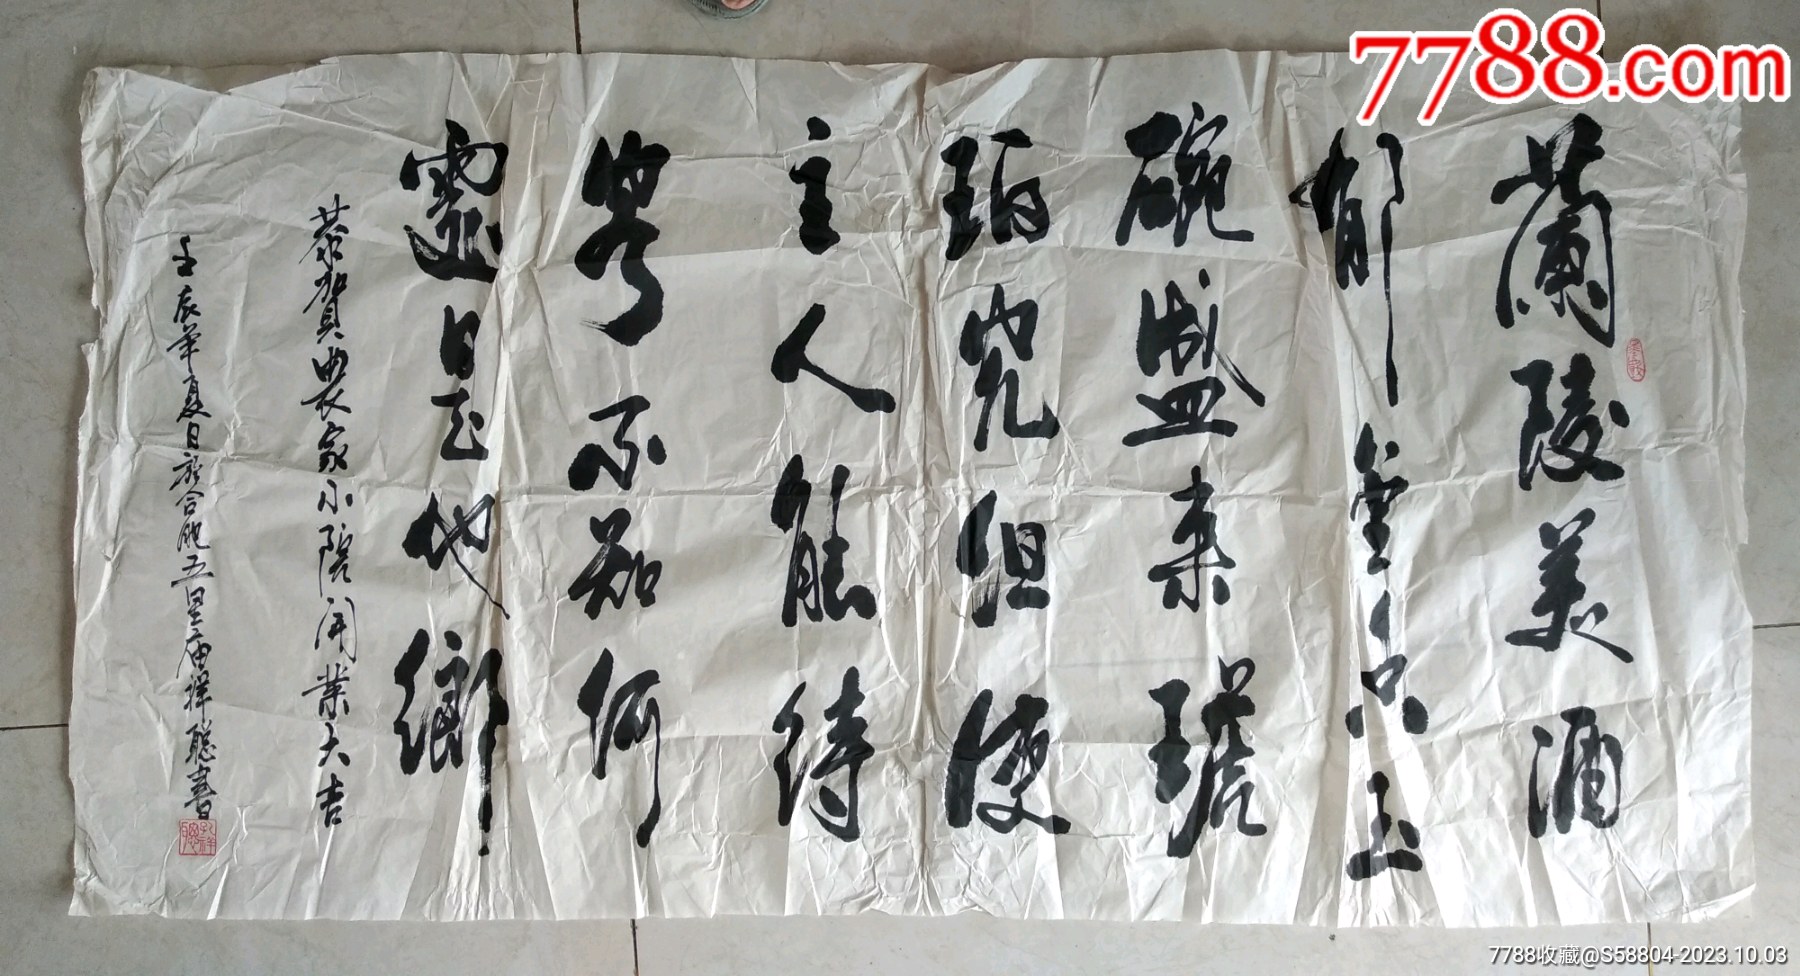 7788.com
蘭陵美酒
郁金香玉
碗盛来琥
珀光但使
主人能醉
客不知何
處是他鄉
恭賀農家小院開業大吉
壬辰年夏日於合肥五里庙祥聪書
7788收藏@S58804-2023.10.03